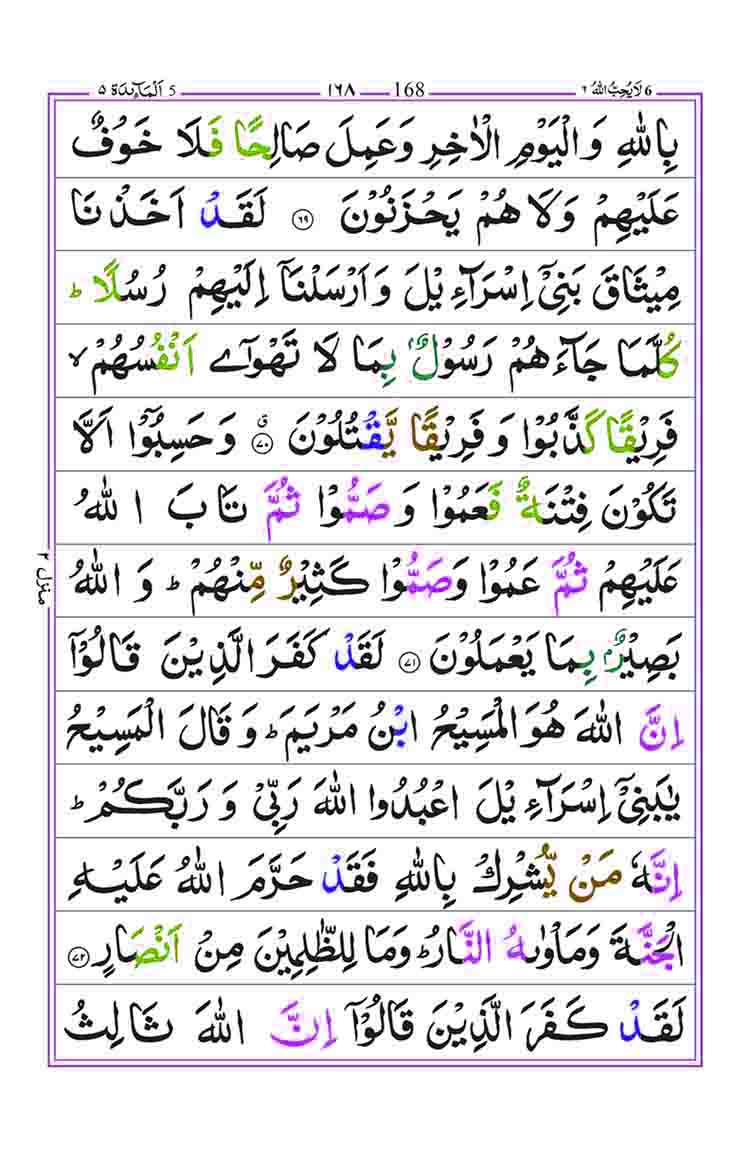 لَا يُحِبُّ اللّٰهُ ٦ 6 168 ١٦٨ 5 اَلْمَآئِدَة ٥
بِاللّٰهِ وَالْيَوْمِ الْاٰخِرِ وَعَمِلَ صَالِحًا فَلَا خَوْفٌ
عَلَيْهِمْ وَلَا هُمْ يَحْزَنُوْنَ ۝٦٩ لَقَدْ اَخَذْنَا
مِيْثَاقَ بَنِيْۤ اِسْرَآءِيْلَ وَاَرْسَلْنَاۤ اِلَيْهِمْ رُسُلًا ؕ
كُلَّمَا جَآءَهُمْ رَسُوْلٌۢ بِمَا لَا تَهْوٰۤى اَنْفُسُهُمْ ۙ
فَرِيْقًا كَذَّبُوْا وَفَرِيْقًا يَّقْتُلُوْنَ ۝٧٠ ق وَحَسِبُوْۤا اَلَّا
تَكُوْنَ فِتْنَةٌ فَعَمُوْا وَصَمُّوْا ثُمَّ تَابَ اللّٰهُ
عَلَيْهِمْ ثُمَّ عَمُوْا وَصَمُّوْا كَثِيْرٌ مِّنْهُمْ ؕ وَاللّٰهُ
بَصِيْرٌۢ بِمَا يَعْمَلُوْنَ ۝٧١ لَقَدْ كَفَرَ الَّذِيْنَ قَالُوْۤا
اِنَّ اللّٰهَ هُوَ الْمَسِيْحُ ابْنُ مَرْيَمَ ؕ وَقَالَ الْمَسِيْحُ
يٰبَنِيْۤ اِسْرَآءِيْلَ اعْبُدُوا اللّٰهَ رَبِّيْ وَرَبَّكُمْ ؕ
اِنَّهٗ مَنْ يُّشْرِكْ بِاللّٰهِ فَقَدْ حَرَّمَ اللّٰهُ عَلَيْهِ
الْجَنَّةَ وَمَاْوٰىهُ النَّارُ ؕ وَمَا لِلظّٰلِمِيْنَ مِنْ اَنْصَارٍ ۝٧٢
لَقَدْ كَفَرَ الَّذِيْنَ قَالُوْۤا اِنَّ اللّٰهَ ثَالِثُ
منزل ٢